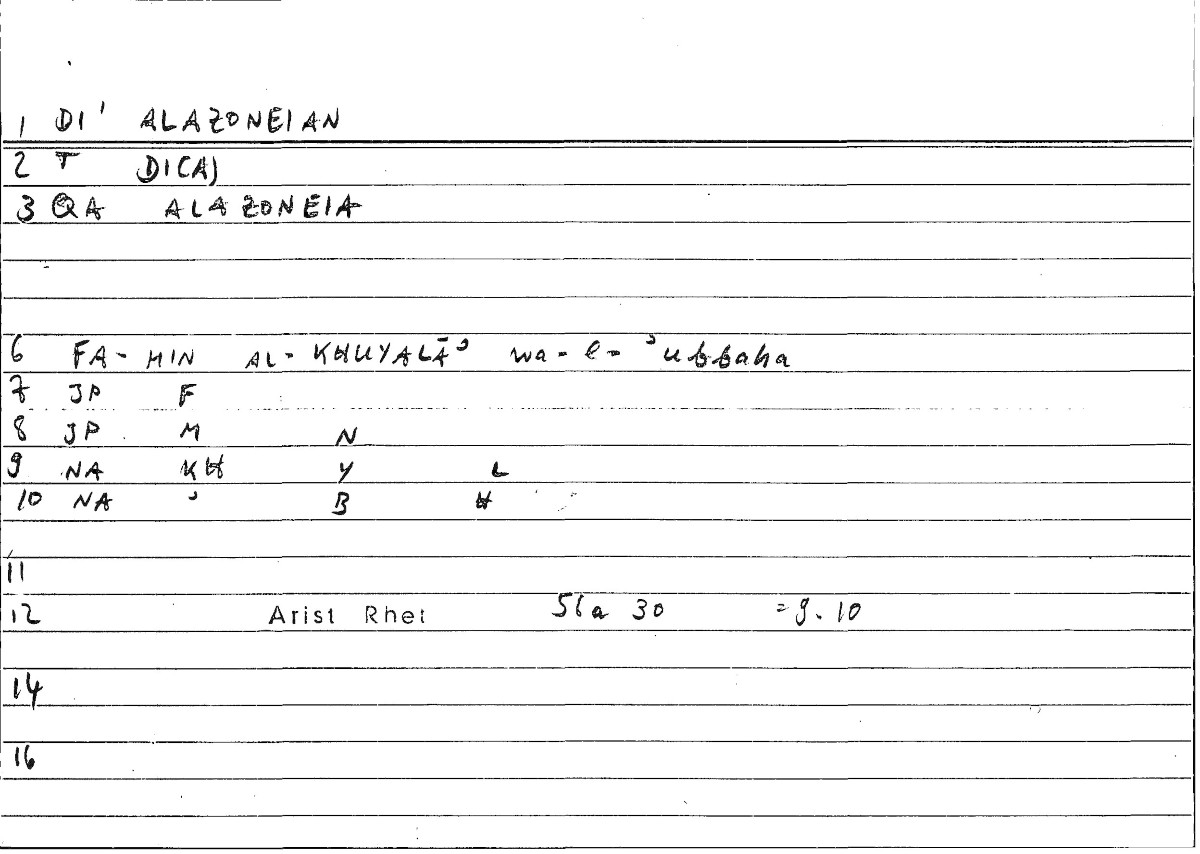 1 DI' ALAZONEIAN
2 T DI(A)
3 QA ALAZONEIA
6 FA- MIN AL- KHUYALĀʾ wa-l-ʾubbaha
7 JP F
8 JP M N
9 NA KH Y L
10 NA ʾ B H
11
12 Arist Rhet 56a 30 = 9.10
14
16